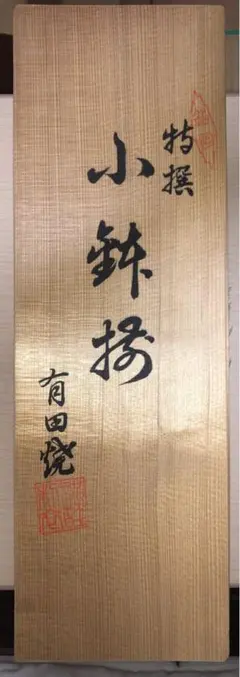 特撰
小鉢揃
有田焼